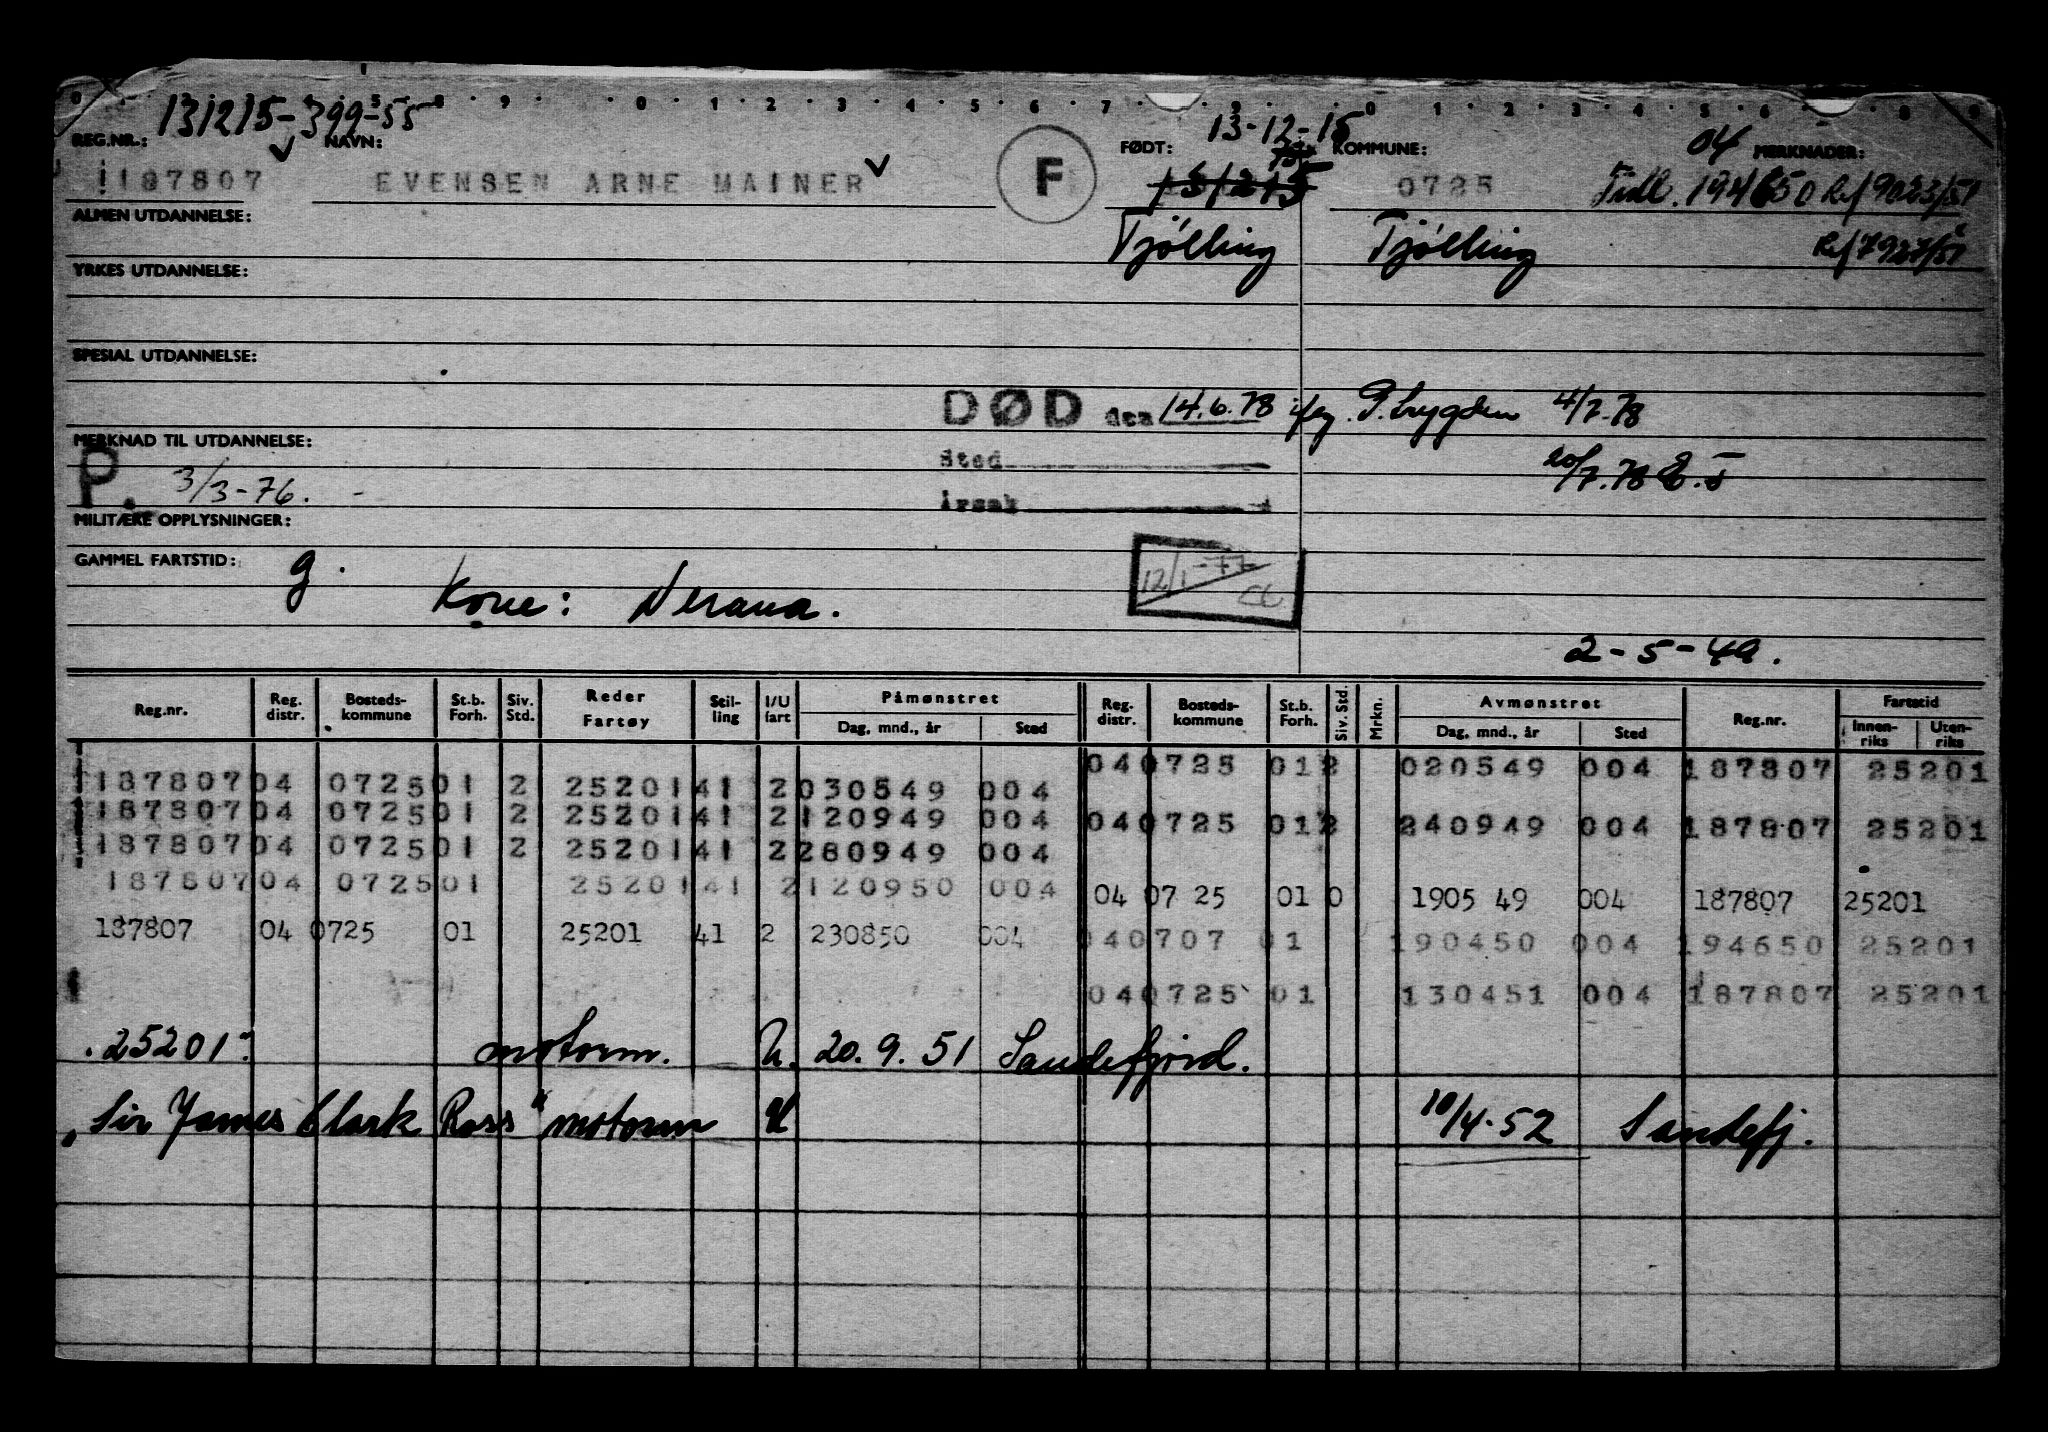 0 . 8 . 9 . 0 . 1 . 2 . 3 . 4 . 5 . 6 . 7 . 9 . 0 . 1 . 2 . 3 . 4 . 5 . 6 . 8 9
131215-399-55 13-12-15 04
REG.NR.: NAVN: F FØDT: KOMMUNE: MERKNADER:
187807 EVENSEN ARNE MAINER 131215 0725 Tidl. 194650 Ref 9023/51
ALMEN UTDANNELSE: Tjølling Tjølling Ref 7927/51
YRKES UTDANNELSE:
SPESIAL UTDANNELSE:
DØD den 14.6.78 4/7-78
MERKNAD TIL UTDANNELSE:
Sted 20/7.78
P. 3/3-76. -
Årsak
MILITÆRE OPPLYSNINGER:
GAMMEL FARTSTID: g. 12/1-77
Kone: Nerana.
2-5-49.
Reg.nr. Reg. distr. Bosteds-kommune St.b. Forh. Siv. Std. Reder Fartøy Stil-ling I/U fart Påmønstret Dag, mnd., år Sted Reg. distr. Bosteds-kommune St.b. Forh. Siv. Std. Mrkn. Avmønstret Dag, mnd., år Sted Reg.nr. Fartstid Innen-riks Uten-riks
040725 012 020549 004 187807 25201
187807 04 0725 01 2 25201 41 2 030549 004
187807 04 0725 01 2 25201 41 2 120949 004 040725 012 240949 004 187807 25201
187807 04 0725 01 2 25201 41 2 280949 004
187807 04 0725 01 25201 41 2 120950 004 04 07 25 01 0 1905 49 004 187807 25201
187807 04 0725 01 25201 41 2 230850 004 040707 01 190450 004 194650 25201
040725 01 130451 004 187807 25201
"25201" motorm. U. 20.9.51 Sandefjord.
"Sir James Clark Ross" motorm U 10/4-52 Sandefj.